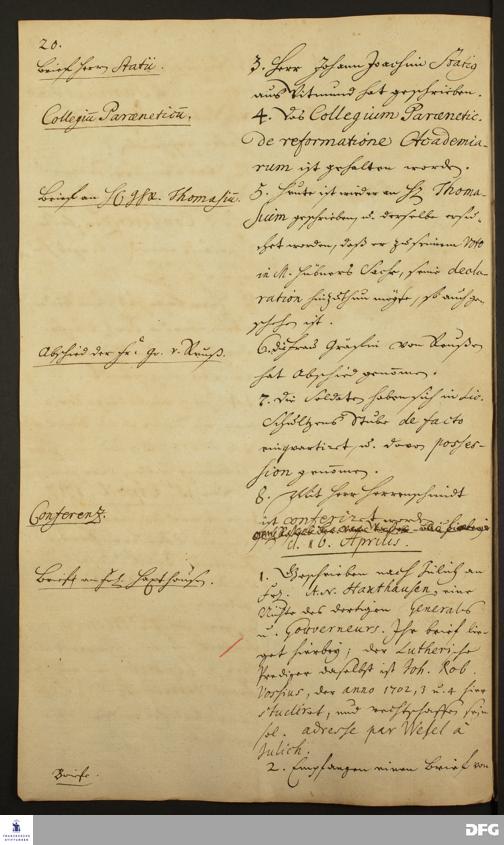 20.
Brief Herrn Statii.
3. Herr Johann Joachim Statig
aus Vitmund hat geschrieben.
Collegiū Paræneticū.
4. Das Collegium Parænetic.
de reformatione Academia-
rum ist gehalten worden.
Brief an H. Thomasiū.
5. Heute ist wieder an H. Thoma-
sium geschrieben, u. derselbe ersu-
chet worden, daß er zu seinem Voto
in M. Hübners Sache, seine decla-
ration hinzuthun möchte, so auch ge-
schehen ist.
Abschied der Fr. Gr. v. Reuß.
6. die Frau Gräfin von Reußen
hat Abschied genommen.
7. Die Soldaten haben sich in Lic.
Schultzens Stube de facto
einquartiret u. davon posses-
sion genommen.
Conferentz.
8. Mit Herr Herrnschmidt
ist conferiret worden
d. 16. Aprilis.
Brief an Haxthausen.
1. Geschrieben nach Jülich an
A. N. Haxthausen, eine
Nichte des dortigen Generals
u. Gouverneurs. Ihr brief lie-
get hierbey; der Lutherische
Prediger daselbst ist Joh. Rob.
Vorsius, der anno 1702, 3 u. 4 hier
studiret, und rechtschaffen seyn
sol. adresse par Wesel à
Julich.
Briefe.
2. Empfangen einen Brief von
FRANCKESCHE STIFTUNGEN
DFG